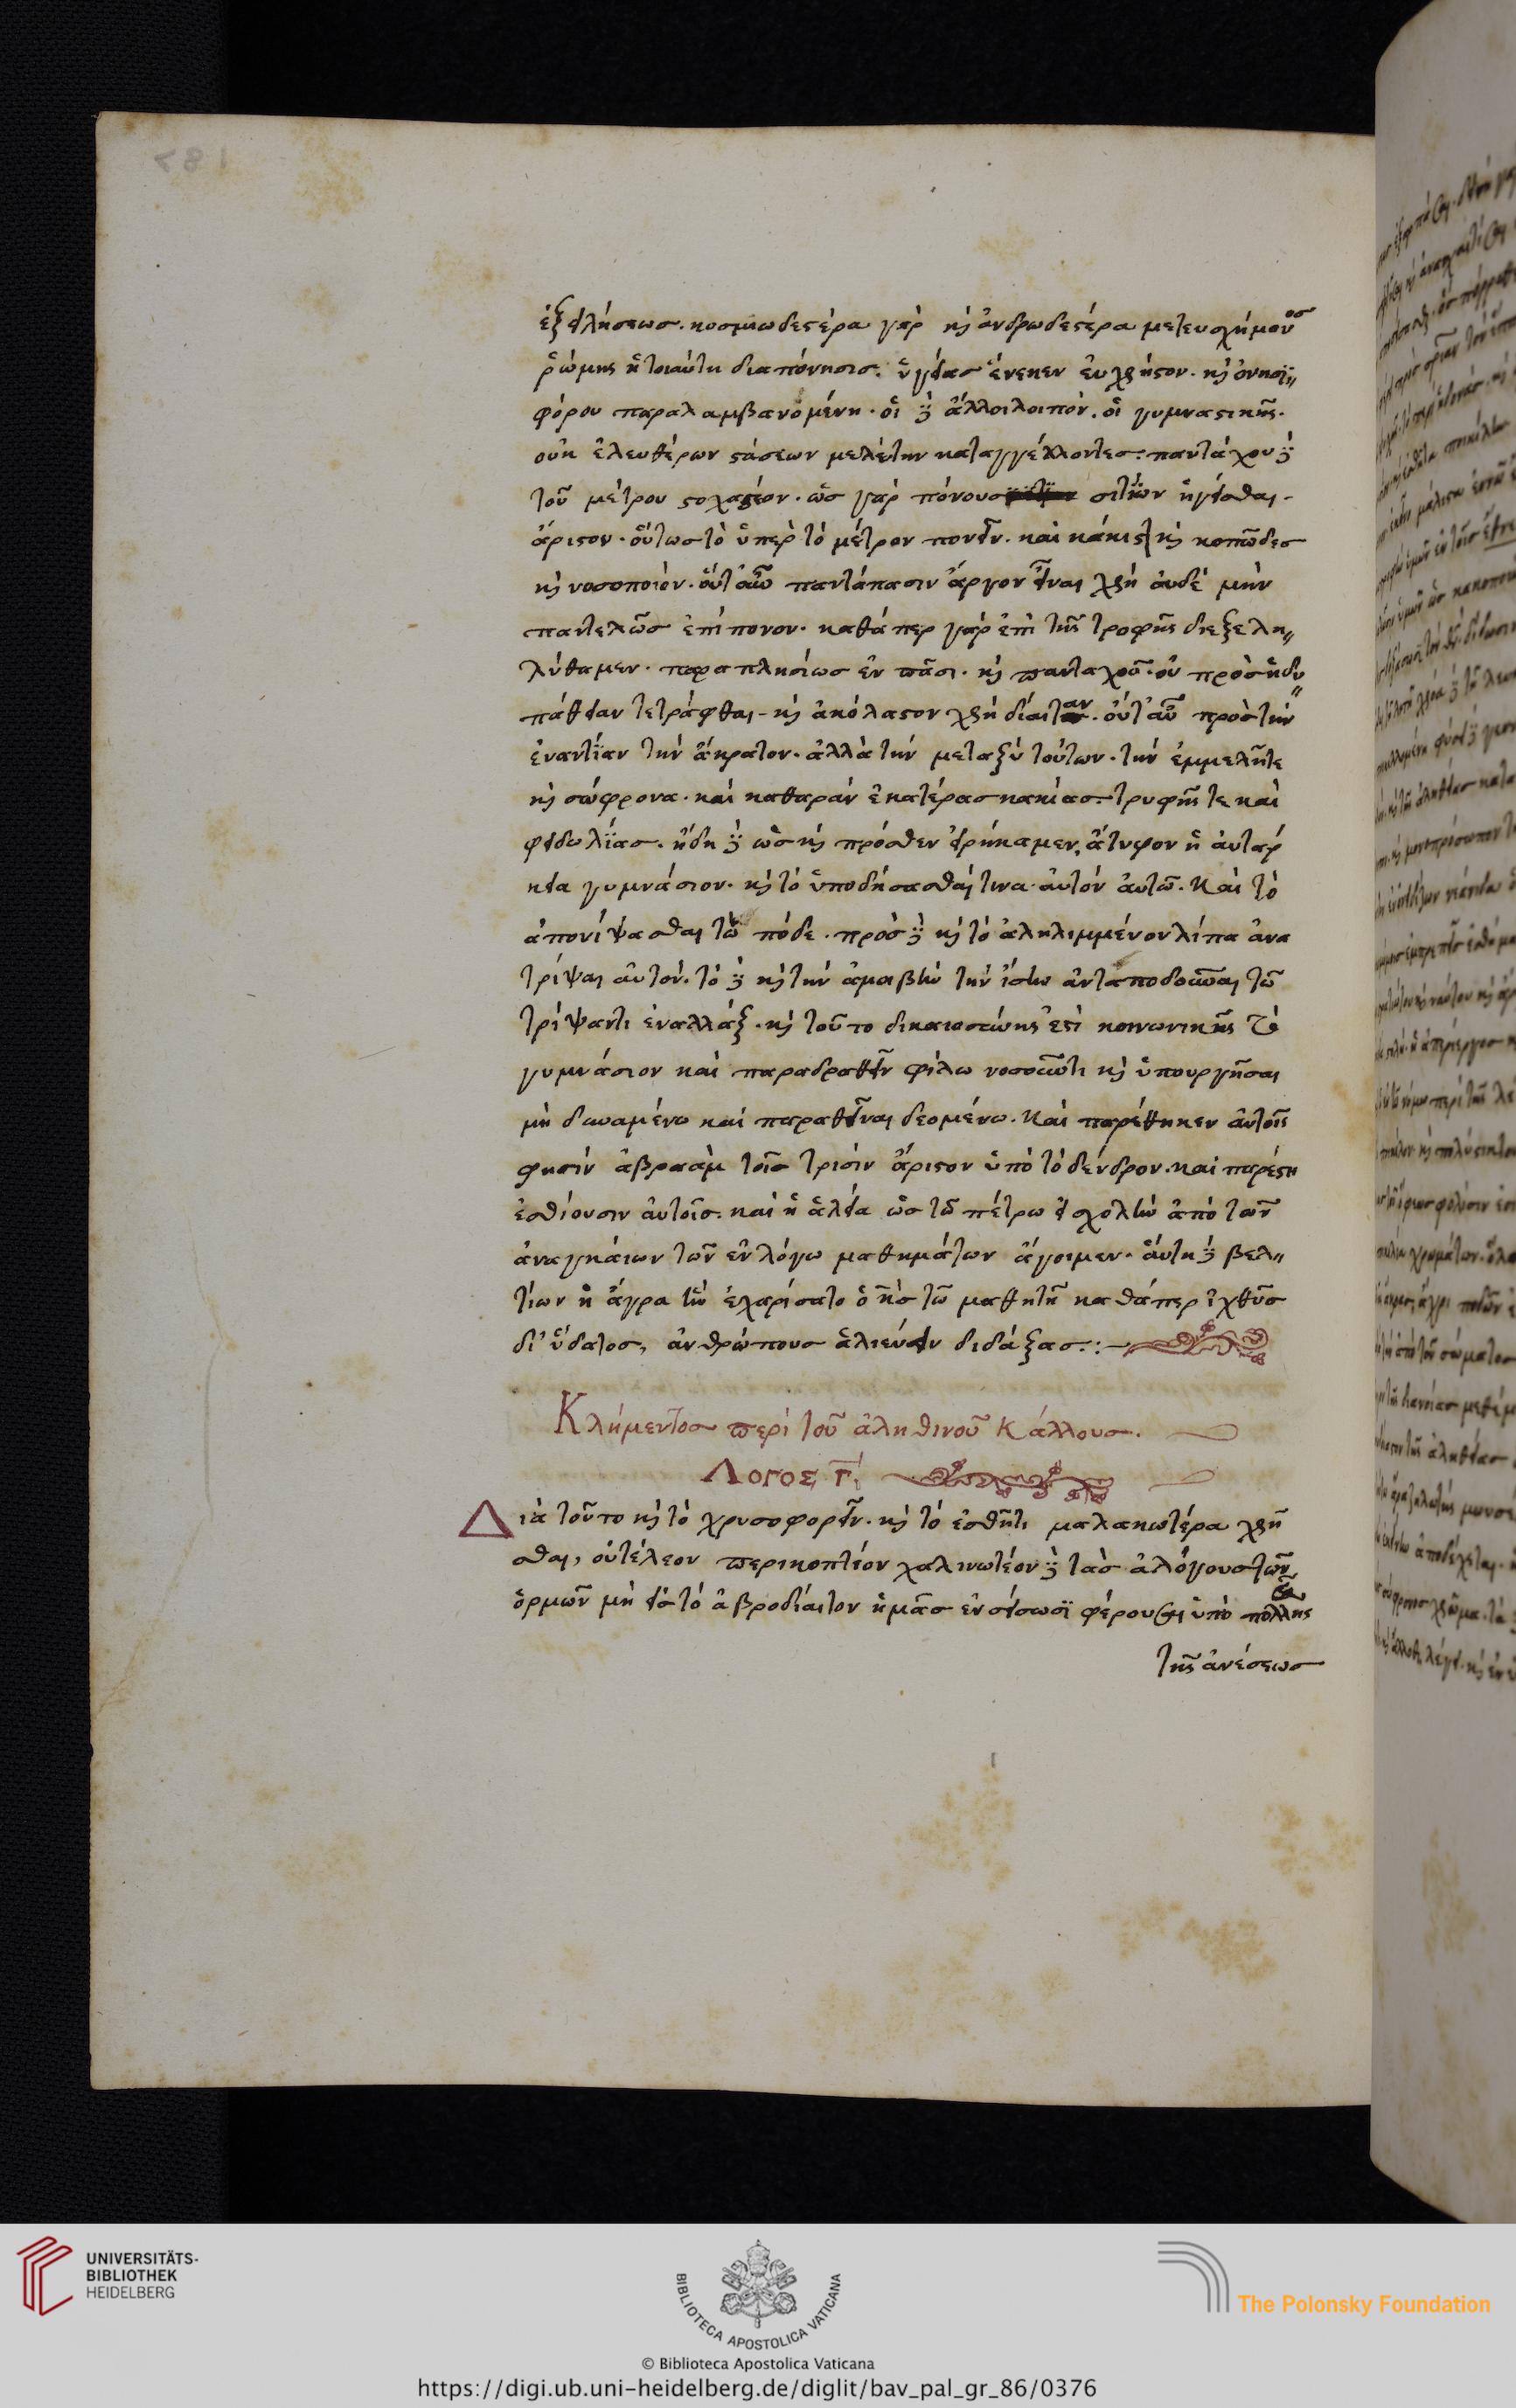 ἐξειλήσεως. κοσμιωδεστέρα γὰρ κὶ ἀνδρωδεστέρα μετευσχήμονος
ῥώμης ἡ τοιαύτη διαπόνησις. ὑγείας ἕνεκεν εὐχρήστου. κὶ ὀνησι„
φόρου παραλαμβανομένη. αἱ δὲ ἄλλαι λοιπὸν. αἱ γυμναστικῆς.
οὐκ ἐλευθέρων στάσεων μελέτην καταγγέλλοντες. πανταχοῦ δὲ
τοῦ μέτρου στοχαστέον. ὡς γὰρ πόνους σιτίων ἡγεῖσθαι.
ἄριστον. οὕτως τὸ ὑπὲρ τὸ μέτρον πονεῖν. καὶ κάκιστ κὶ κοπῶδες
κὶ νοσοποιόν. οὔτ' οὖν παντάπασιν ἄργον εἶναι χρὴ οὐδὲ μὴν
παντελῶς ἐπίπονον. καθάπερ γὰρ ἐπὶ τῆς τροφῆς διεξελη„
λύθαμεν. παραπλησίως ἐν πᾶσι. κὶ πανταχοῦ. οὐ πρὸς ἡδυ„
πάθειαν τετράφθαι. κὶ ἀκόλαστον χρὴ δίαιταν. οὔτ' αὖ πρὸς τὴν
ἐναντίαν τὴν ἄκρατον. ἀλλὰ τὴν μεταξὺ τούτων. τὴν ἐμμελῆτε
κὶ σώφρονα. καὶ καθαρὰν ἑκατέρας κακίας. τρυφῆς τε καὶ
φειδωλίας. ἤδη δὲ ὡς κὶ πρόσθεν εἰρήκαμεν, ἄτυφον ἡ αὐταρ
κεία γυμνάσιον. κὶ τὸ ὑποδήσασθαί τινα. αὐτὸν αὑτῶ. καὶ τὸ
ἀπονίψασθαι τὼ πόδε. πρὸς δὲ κὶ τὸ ἀληλιμμένον λίπα ἀνα
τρίψαι αὐτόν. τὸ δὲ κὶ τὴν ἀμοιβὴν τὴν ἴσην ἀνταποδοῦναι τῶ
τρίψαντι ἐναλλάξ. κὶ τοῦτο δικαιοσύνης ἐστὶ κοινωνικῆς τὸ
γυμνάσιον καὶ παραδραθεῖν φίλω νοσοῦντι κὶ ὑπουργῆσαι
μὴ δυναμένω καὶ παραθεῖναι δεομένω. καὶ παρέθηκεν αὐτοῖς
φησὶν ἀβραὰμ τοῖς τρισὶν ἄριστον ὑπὸ τὸ δένδρον. καὶ παρέστη
ἐσθίουσιν αὐτοῖς. καὶ ἡ ἁλεία ὡς τῶ πέτρω εἰ σχολὴν ἀπὸ τῶν
ἀναγκαίων τῶν ἐν λόγω μαθημάτων ἄγοιμεν. αὕτη δὲ βελ„
τίων ἡ ἄγρα ἣν ἐχαρίσατο ὁ κς τῶ μαθητῆ καθάπερ ἰχθῦς
δι' ὕδατος, ἀνθρώπους ἁλιεύειν διδάξας.:—
Κλήμεντος περὶ τοῦ ἀληθινοῦ κάλλους.
Λόγος Γ.
Διὰ τοῦτο κὶ τὸ χρυσοφορεῖν. κὶ τὸ ἐσθῆτι μαλακωτέρα χρῆ
σθαι, οὐτέλεον περικοπτέον χαλινωτέον δὲ τὰς ἀλόγους τῶν
ὁρμῶν μὴ εἰς τὸ ἁβροδίαιτον ἡμᾶς ἐνσείσωσι φέρουσαι ὑπὸ πολλῆς
τῆς ἀνέσεως
UNIVERSITÄTS-
BIBLIOTHEK
HEIDELBERG
BIBLIOTECA APOSTOLICA VATICANA
The Polonsky Foundation
© Biblioteca Apostolica Vaticana
https://digi.ub.uni-heidelberg.de/diglit/bav_pal_gr_86/0376